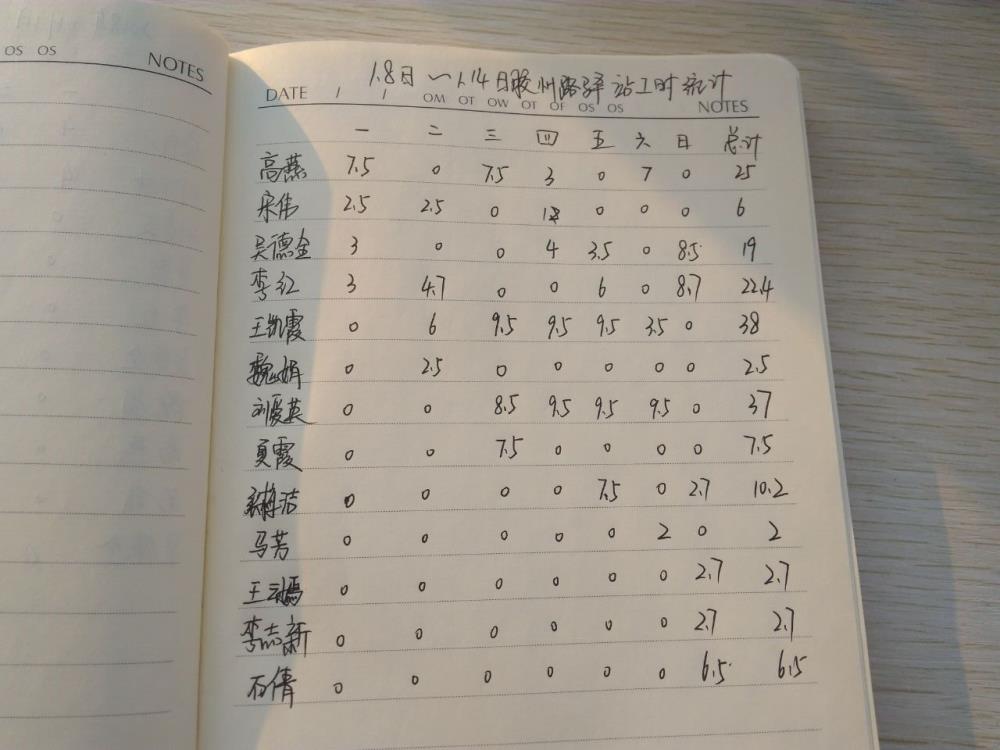 OS OS NOTES
1.8日～1.14日胶州路驿站工时统计
DATE / / OM OT OW OT OF OS OS NOTES
一 二 三 四 五 六 日 总计
高燕 7.5 0 7.5 3 0 7 0 25
宋伟 2.5 2.5 0 1 0 0 0 6
吴德金 3 0 0 4 3.5 0 8.5 19
李红 3 4.7 0 0 6 0 8.7 22.4
王凯霞 0 6 9.5 9.5 9.5 3.5 0 38
魏娟 0 2.5 0 0 0 0 0 2.5
刘爱英 0 0 8.5 9.5 9.5 9.5 0 37
夏霞 0 0 7.5 0 0 0 0 7.5
洁 0 0 0 0 7.5 0 2.7 10.2
马芳 0 0 0 0 0 2 0 2
王 0 0 0 0 0 0 2.7 2.7
李志新 0 0 0 0 0 0 2.7 2.7
石倩 0 0 0 0 0 0 6.5 6.5